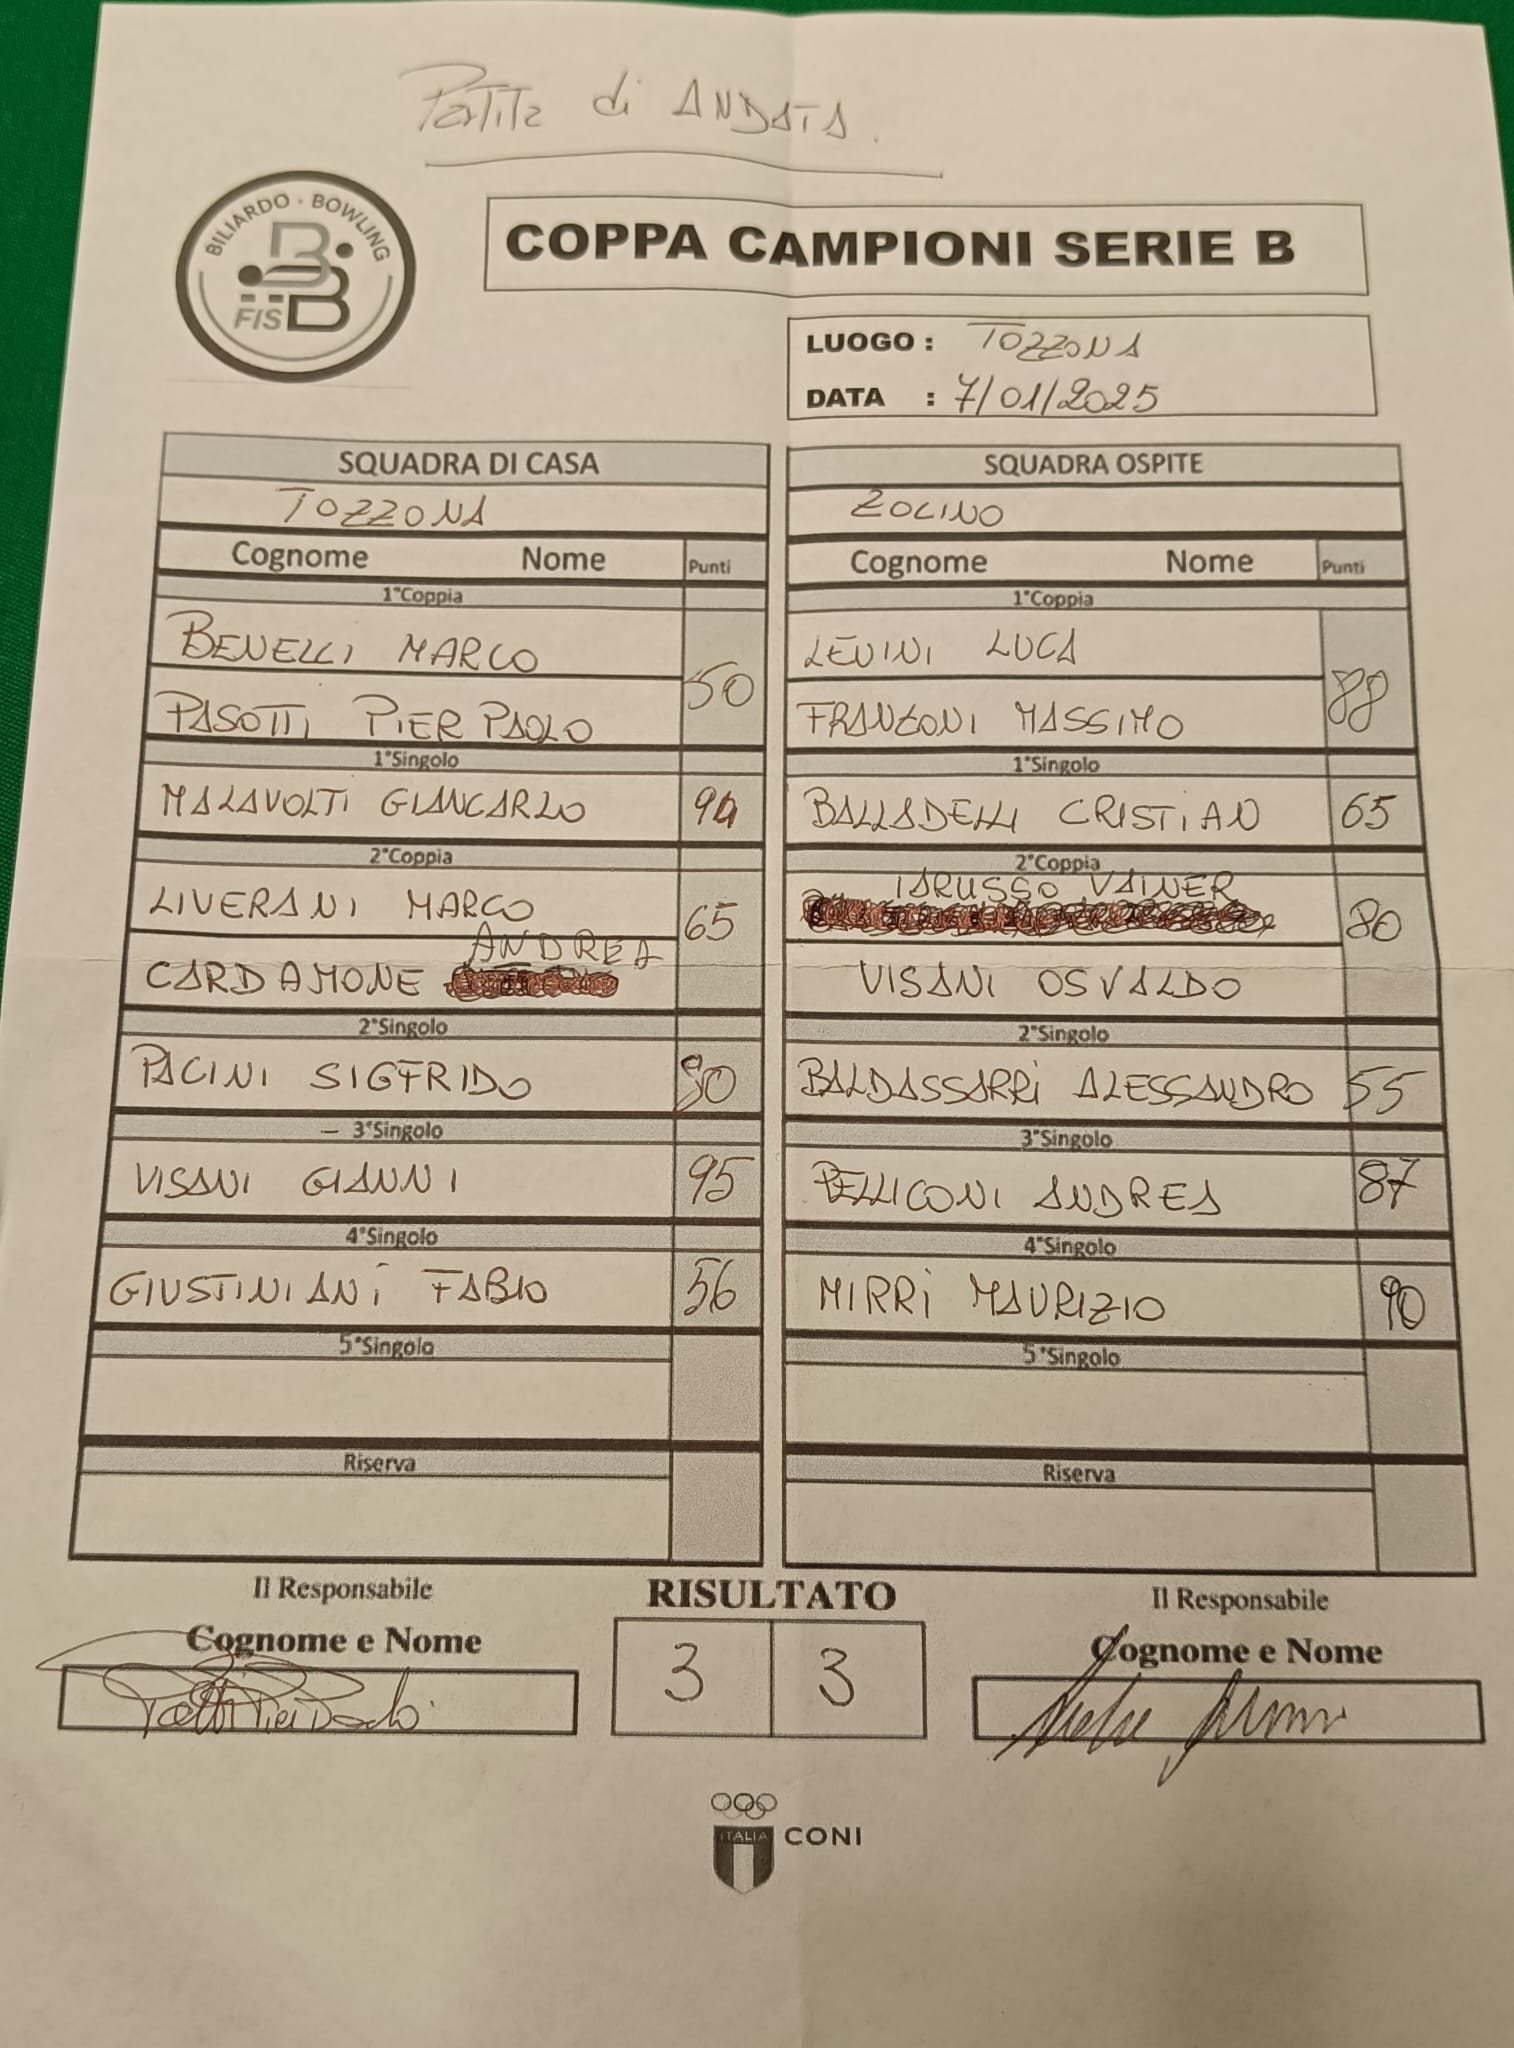 Partita di ANDATA.
BILIARDO - BOWLING
FISBB
COPPA CAMPIONI SERIE B
LUOGO : TOZZONA
DATA : 7/01/2025
SQUADRA DI CASA
TOZZONA
Cognome Nome Punti
1°Coppia
BENELLI MARCO
50
PASOTTI PIER PAOLO
1°Singolo
MALAVOLTI GIANCARLO 94
2°Coppia
LIVERANI MARCO
65
ANDREA
CARDAMONE
2°Singolo
PACINI SIGFRIDO 90
3°Singolo
VISANI GIANNI 95
4°Singolo
GIUSTINIANI FABIO 56
5°Singolo
Riserva
SQUADRA OSPITE
ZOLINO
Cognome Nome Punti
1°Coppia
LEVINI LUCA
88
FRANZONI MASSIMO
1°Singolo
BALLADELLI CRISTIAN 65
2°Coppia
IARUSSO VAINER
80
VISANI OSVALDO
2°Singolo
BALDASSARRI ALESSANDRO 55
3°Singolo
PELLICONI ANDREA 87
4°Singolo
MIRRI MAURIZIO 90
5°Singolo
Riserva
Il Responsabile
Cognome e Nome
RISULTATO
3 3
Il Responsabile
Cognome e Nome
ITALIA
CONI